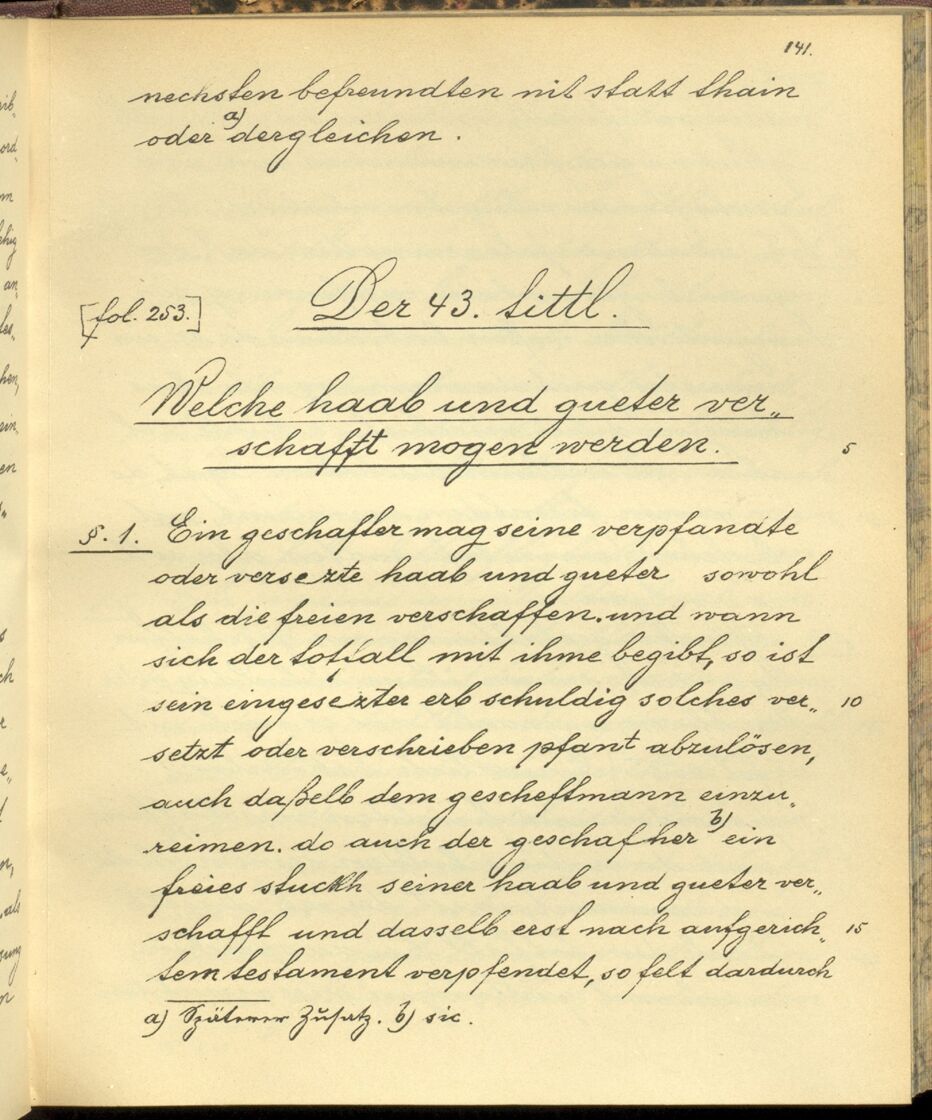 141.
nechsten befreundten nit statt thain
oder a) dergleichen.
[fol. 253.]
Der 43. tittl.
Welche haab und gueter ver„
schafft mogen werden.
5
§. 1. Ein geschafter mag seine verpfandte
oder versezte haab und gueter sowohl
als die freien verschaffen. und wann
sich der totfall mit ihme begibt, so ist
sein eingesezter erb schuldig solches ver„ 10
setzt oder verschrieben pfant abzulösen,
auch daßelb dem gescheftmann einzu„
reimen. do auch der geschafher b) ein
freies stuckh seiner haab und gueter ver„
schafft und dasselb erst nach aufgerich„ 15
tem testament verpfendet, so felt dardurch
a) Späterer Zusatz. b) sic.